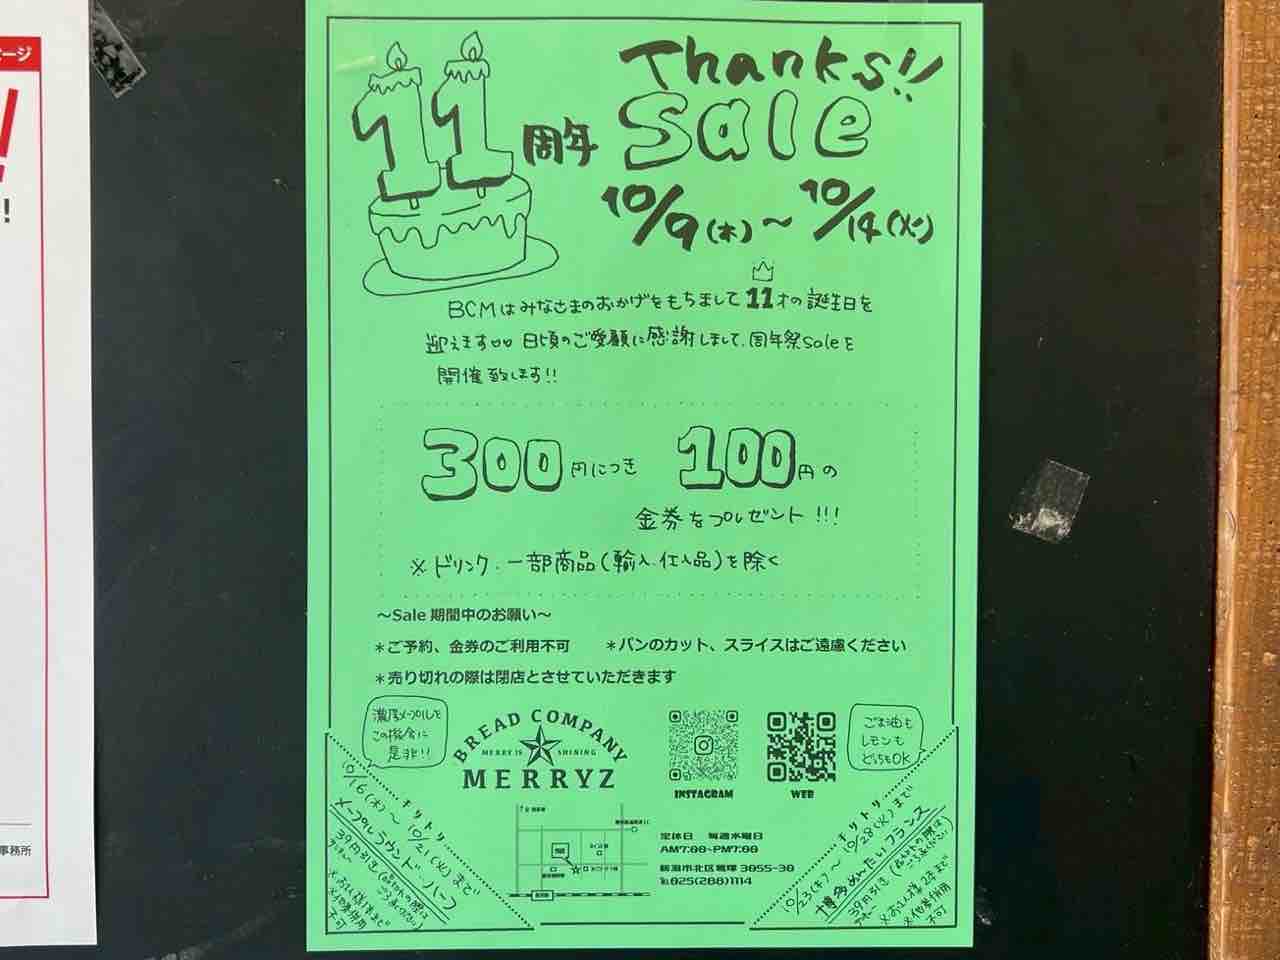 ージ
!
事務所
11周年 Thanks!!
Sale
10/9(木)～10/14(火)
BCMはみなさまのおかげをもちまして11才の誕生日を
迎えます 日頃のご愛願に感謝しまして、周年祭Saleを
開催致します!!
300円につき 100円の
金券をプレゼント!!!
※ドリンク、一部商品(輸入、仕入品)を除く
～Sale 期間中のお願い～
＊ご予約、金券のご利用不可 ＊パンのカット、スライスはご遠慮ください
＊売り切れの際は閉店とさせていただきます
濃厚メープルを
この機会に
是非!!
BREAD COMPANY
MERRY IS SHINING
MERRYZ
INSTAGRAM
WEB
ごま油も
レモンも
どっちもOK
キリトリ
10/16(木)～10/21(火)まで
メープルラウンド・ハーフ
39円引き
※他券併用
不可
定休日 毎週水曜日
AM7:00-PM7:00
新潟市北区葛塚 3055-30
℡025(288)1114
キリトリ
10/23(木)～10/28(火)まで
博多めんたいフランス
39円引き
※お1人様2本まで
※他券併用
不可